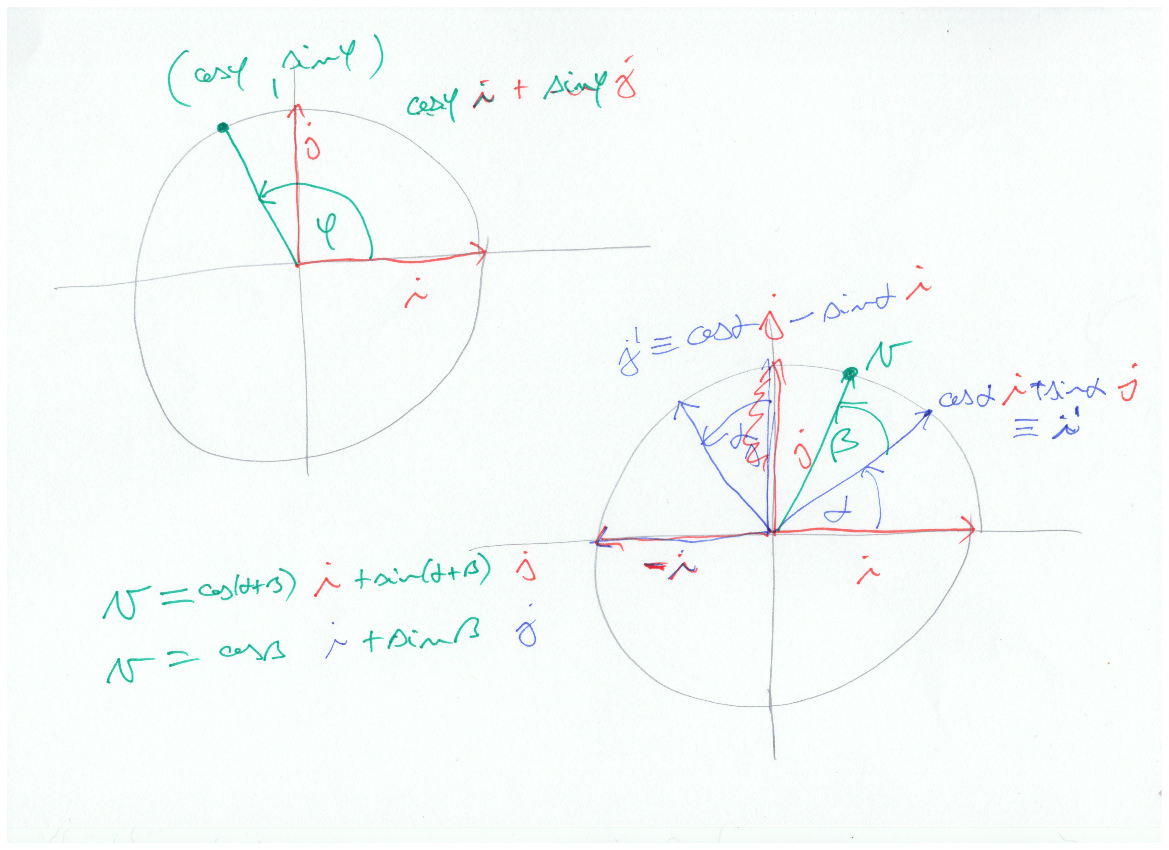 (cosφ, sinφ)
cosφ i + sinφ j
j
φ
i
j' ≡ cosα j - sinα i
v
cosα i + sinα j
≡ i'
α
j
β
α
-i
i
v = cos(α+β) i + sin(α+β) j
v = cosβ i + sinβ j